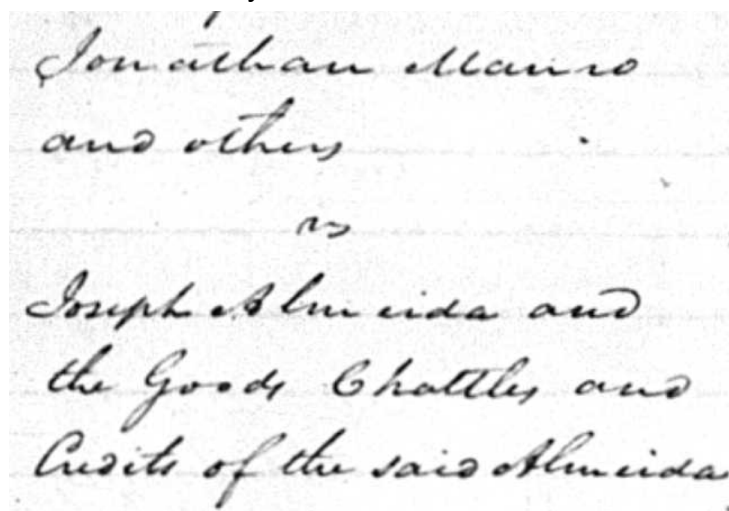 Jonathan Manro
and others
vs
Joseph Almeida and
the Goods Chattles and
Credits of the said Almeida